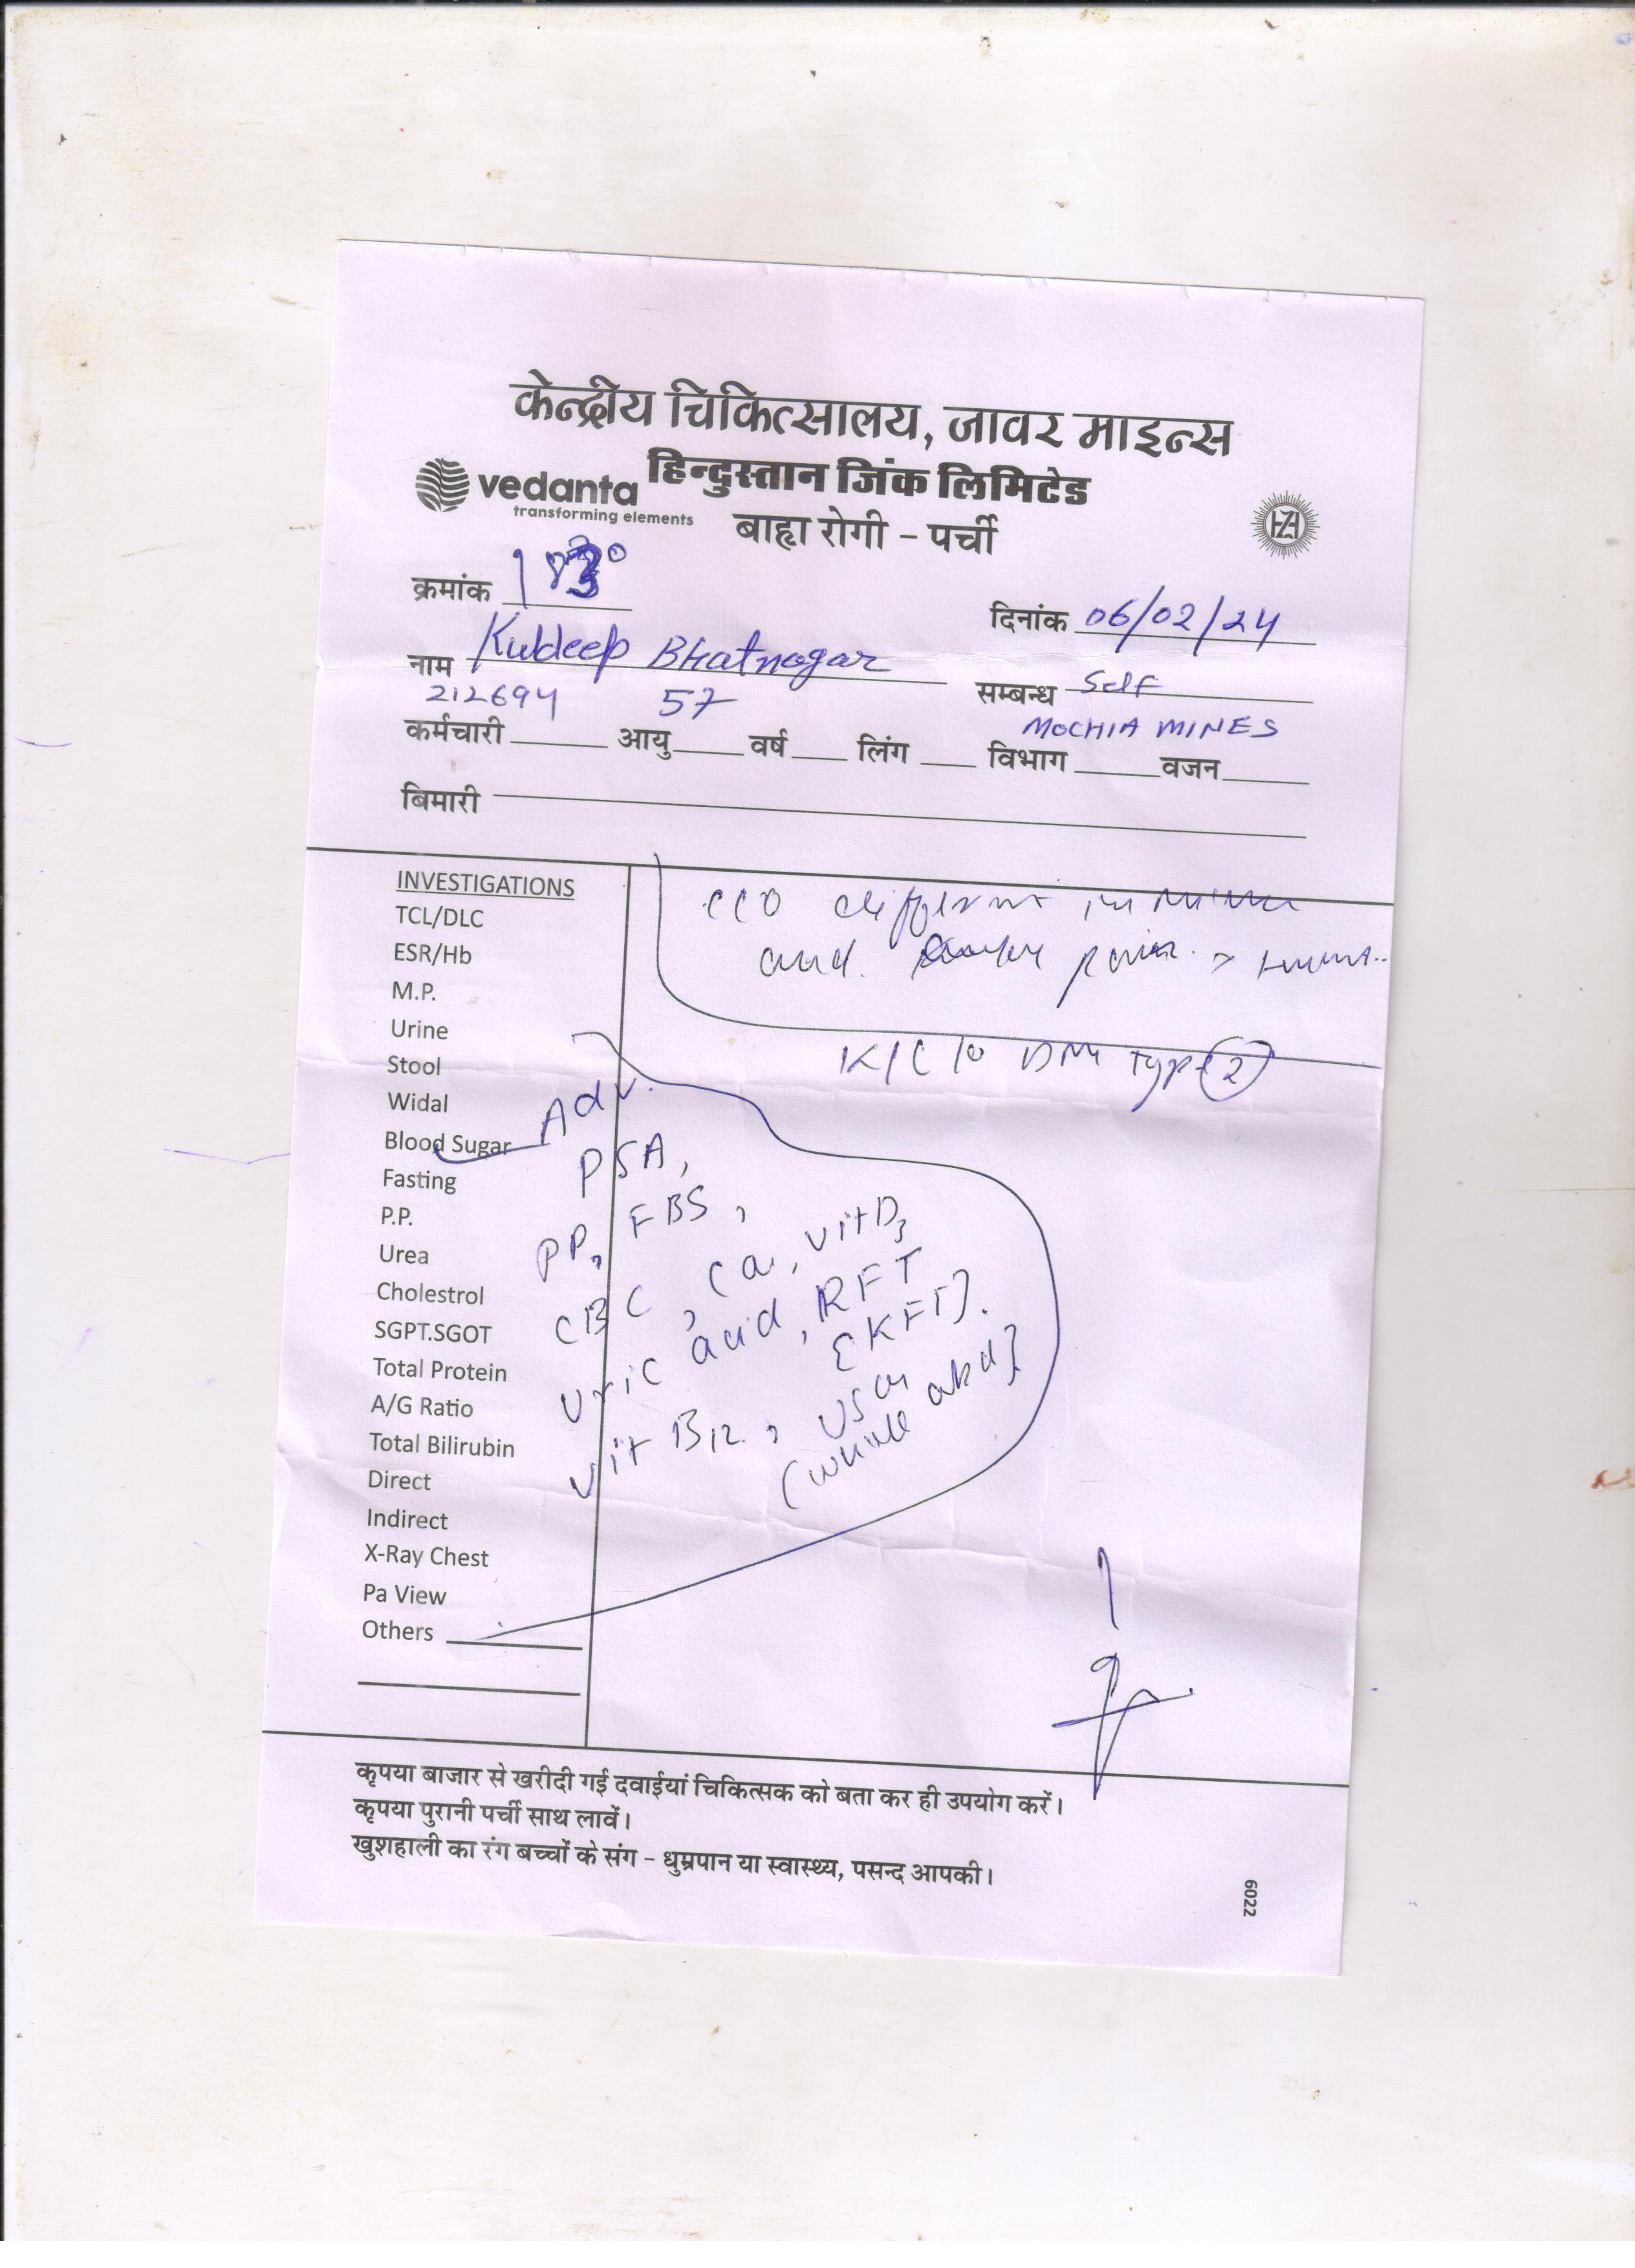 केन्द्रीय चिकित्सालय, जावर माइन्स
हिन्दुस्तान जिंक लिमिटेड
vedanta
transforming elements
बाह्य रोगी - पर्ची
HZL
क्रमांक
दिनांक 06/02/24
नाम Kuldeep Bhatnagar
सम्बन्ध Self
212694 57 MOCHIA MINES
कर्मचारी आयु वर्ष लिंग विभाग वजन
बिमारी
C/O different
and
K/C/O DM Type (2)
INVESTIGATIONS
TCL/DLC
ESR/Hb
M.P.
Urine
Stool
Widal
Blood Sugar
Fasting
P.P.
Urea
Cholestrol
SGPT.SGOT
Total Protein
A/G Ratio
Total Bilirubin
Direct
Indirect
X-Ray Chest
Pa View
Others
Adv.
PSA,
PP, FBS,
CBC, Ca, vit D3
uric acid, RFT
{KFT}.
vit B12, USG
(whole abd}
कृपया बाजार से खरीदी गई दवाईयां चिकित्सक को बता कर ही उपयोग करें।
कृपया पुरानी पर्ची साथ लावें।
खुशहाली का रंग बच्चों के संग - धुम्रपान या स्वास्थ्य, पसन्द आपकी।
6022